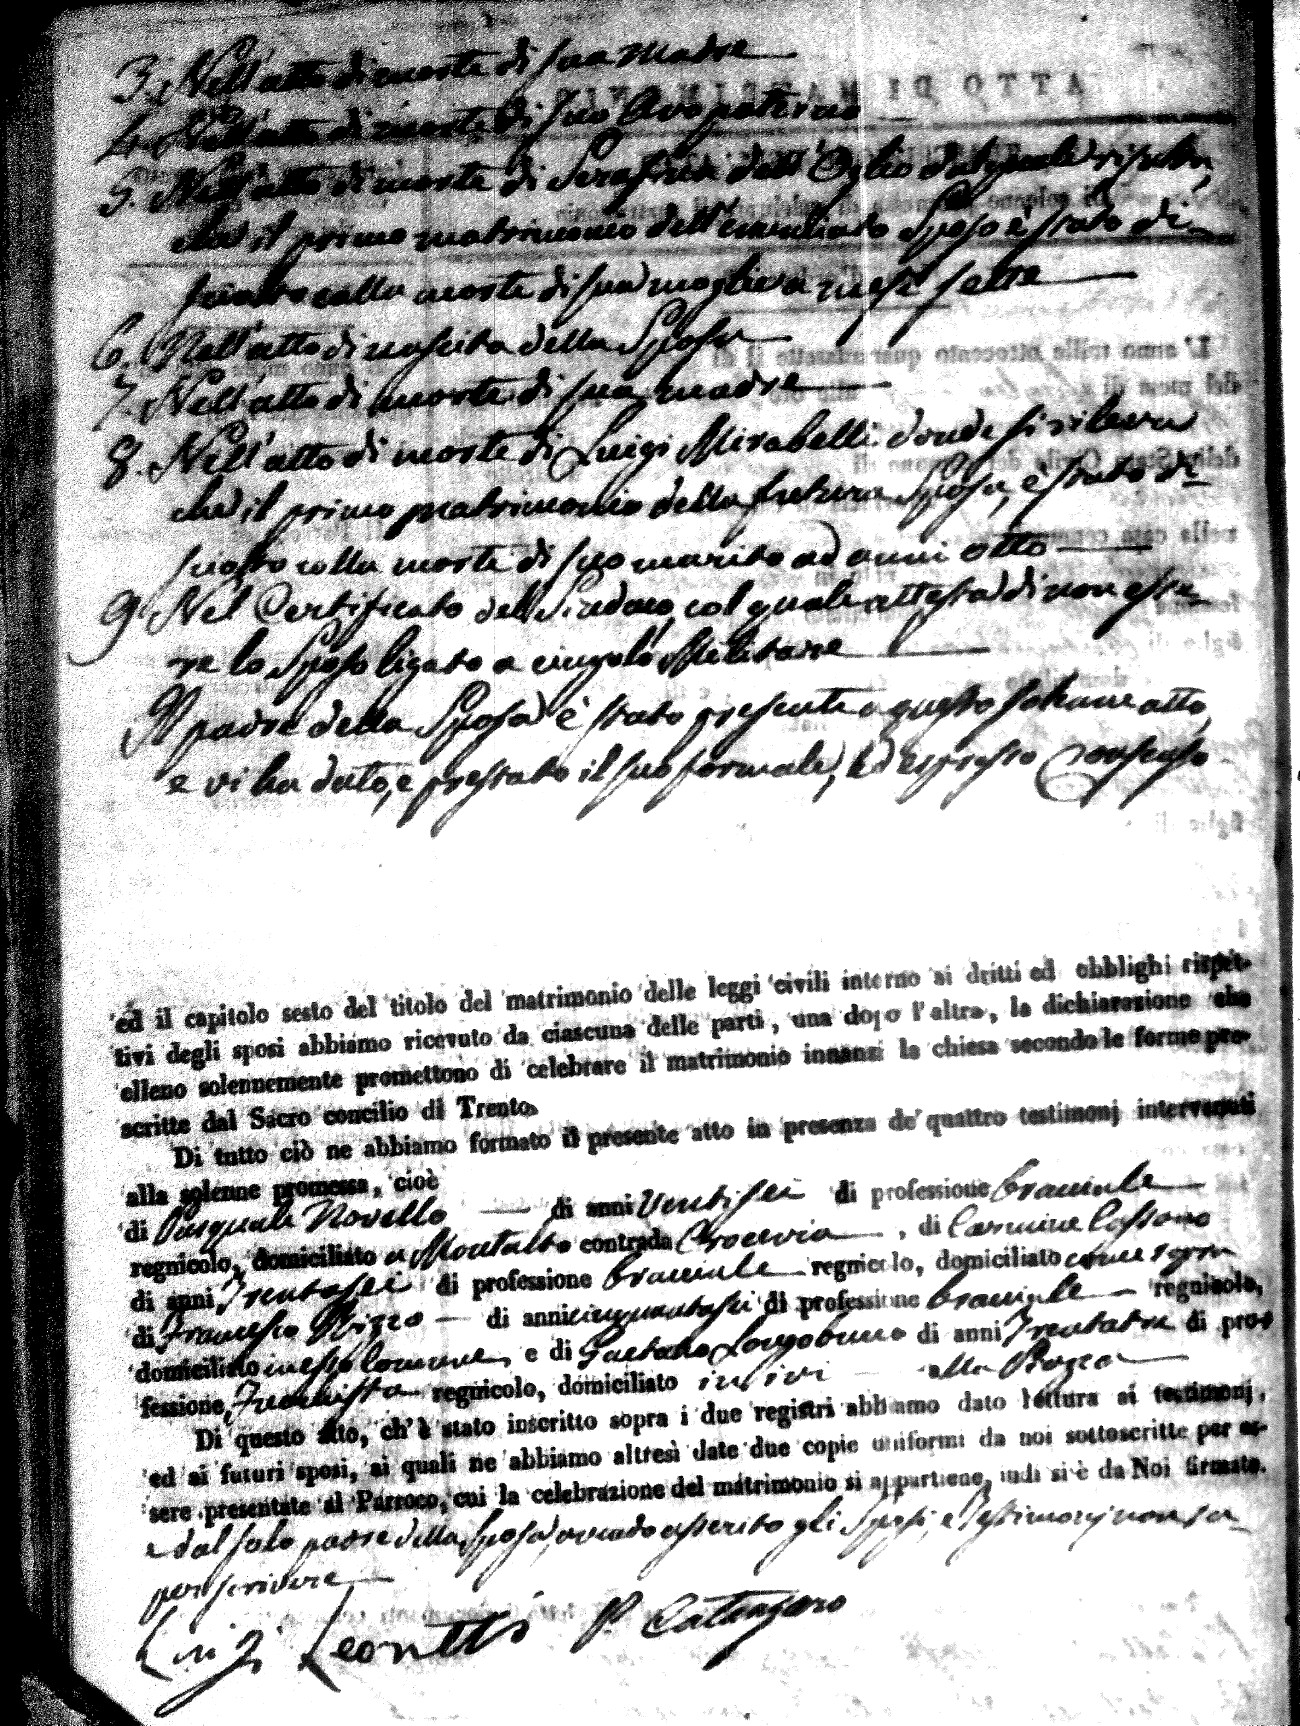 3. Nell'atto di morte di sua Madre
4. Nell'atto di morte di suo Avo paterno
5. Nell'atto di morte di Serafina dell'Oglio dal quale risulta,
che il primo matrimonio dell'enunciato Sposo è stato di
sciolto colla morte di sua moglie a mesi sette
6. Nell'atto di nascita della Sposa
7. Nell'atto di morte di sua madre
8. Nell'atto di morte di Luigi Mirabelli donde si rileva
che il primo matrimonio della futura Sposa, è stato di
sciolto colla morte di suo marito ad anni otto
9. Nel Certificato del Sindaco, col quale attesta di non esse-
re lo Sposo ligato a cingolo Militare
Il padre della Sposa è stato presente a questo solenne atto,
e vi ha dato, e prestato il suo formale, ed espresso Consenso
ed il capitolo sesto del titolo del matrimonio delle leggi civili interno ai dritti ed obblighi rispet-
tivi degli sposi abbiamo ricevuto da ciascuna delle parti, una dopo l'altra, la dichiarazione che
elleno solennemente promettono di celebrare il matrimonio innanzi la chiesa secondo le forme pre-
scritte dal Sacro concilio di Trento.
Di tutto ciò ne abbiamo formato il presente atto in presenza de' quattro testimonj intervenuti
alla solenne promessa, cioè
di Pasquale Novello di anni Ventisei di professione bracciale
regnicolo, domiciliato a Montalto contrada Crocevia, di Carmine Cassano
di anni Trentasei di professione bracciale regnicolo, domiciliato come sopra
di Francesco Rizzo di anni cinquantasei di professione bracciale regnicolo,
domiciliato in esso Comune, e di Gaetano Longobucco di anni Trentatre di pro-
fessione regnicolo, domiciliato ivi alla
Di questo atto, ch'è stato inscritto sopra i due registri abbiamo dato lettura ai testimonj,
ed ai futuri sposi, ai quali ne abbiamo altresì date due copie uniformi da noi sottoscritte per es-
sere presentate al Parroco, cui la celebrazione del matrimonio si appartiene, indi si è da Noi firmato.
e dal solo padre della Sposa, avendo asserito gli Sposi, e Testimonj non sa-
per scrivere
Luigi Leonetti P. Catanzaro